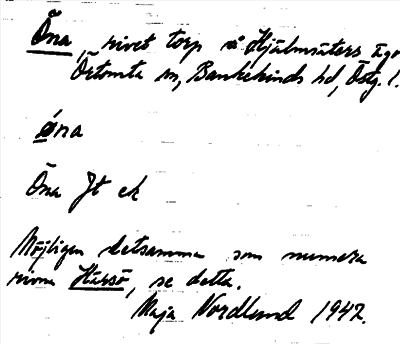 Öna, rivet torp å Hjälmsäters ägor
Örtomta sn, Bankekinds hd, Östg. l.
öna
Öna Jt ek
Möjligen detsamma som numera
rivna Harsö, se detta.
Maja Nordlund 1942.